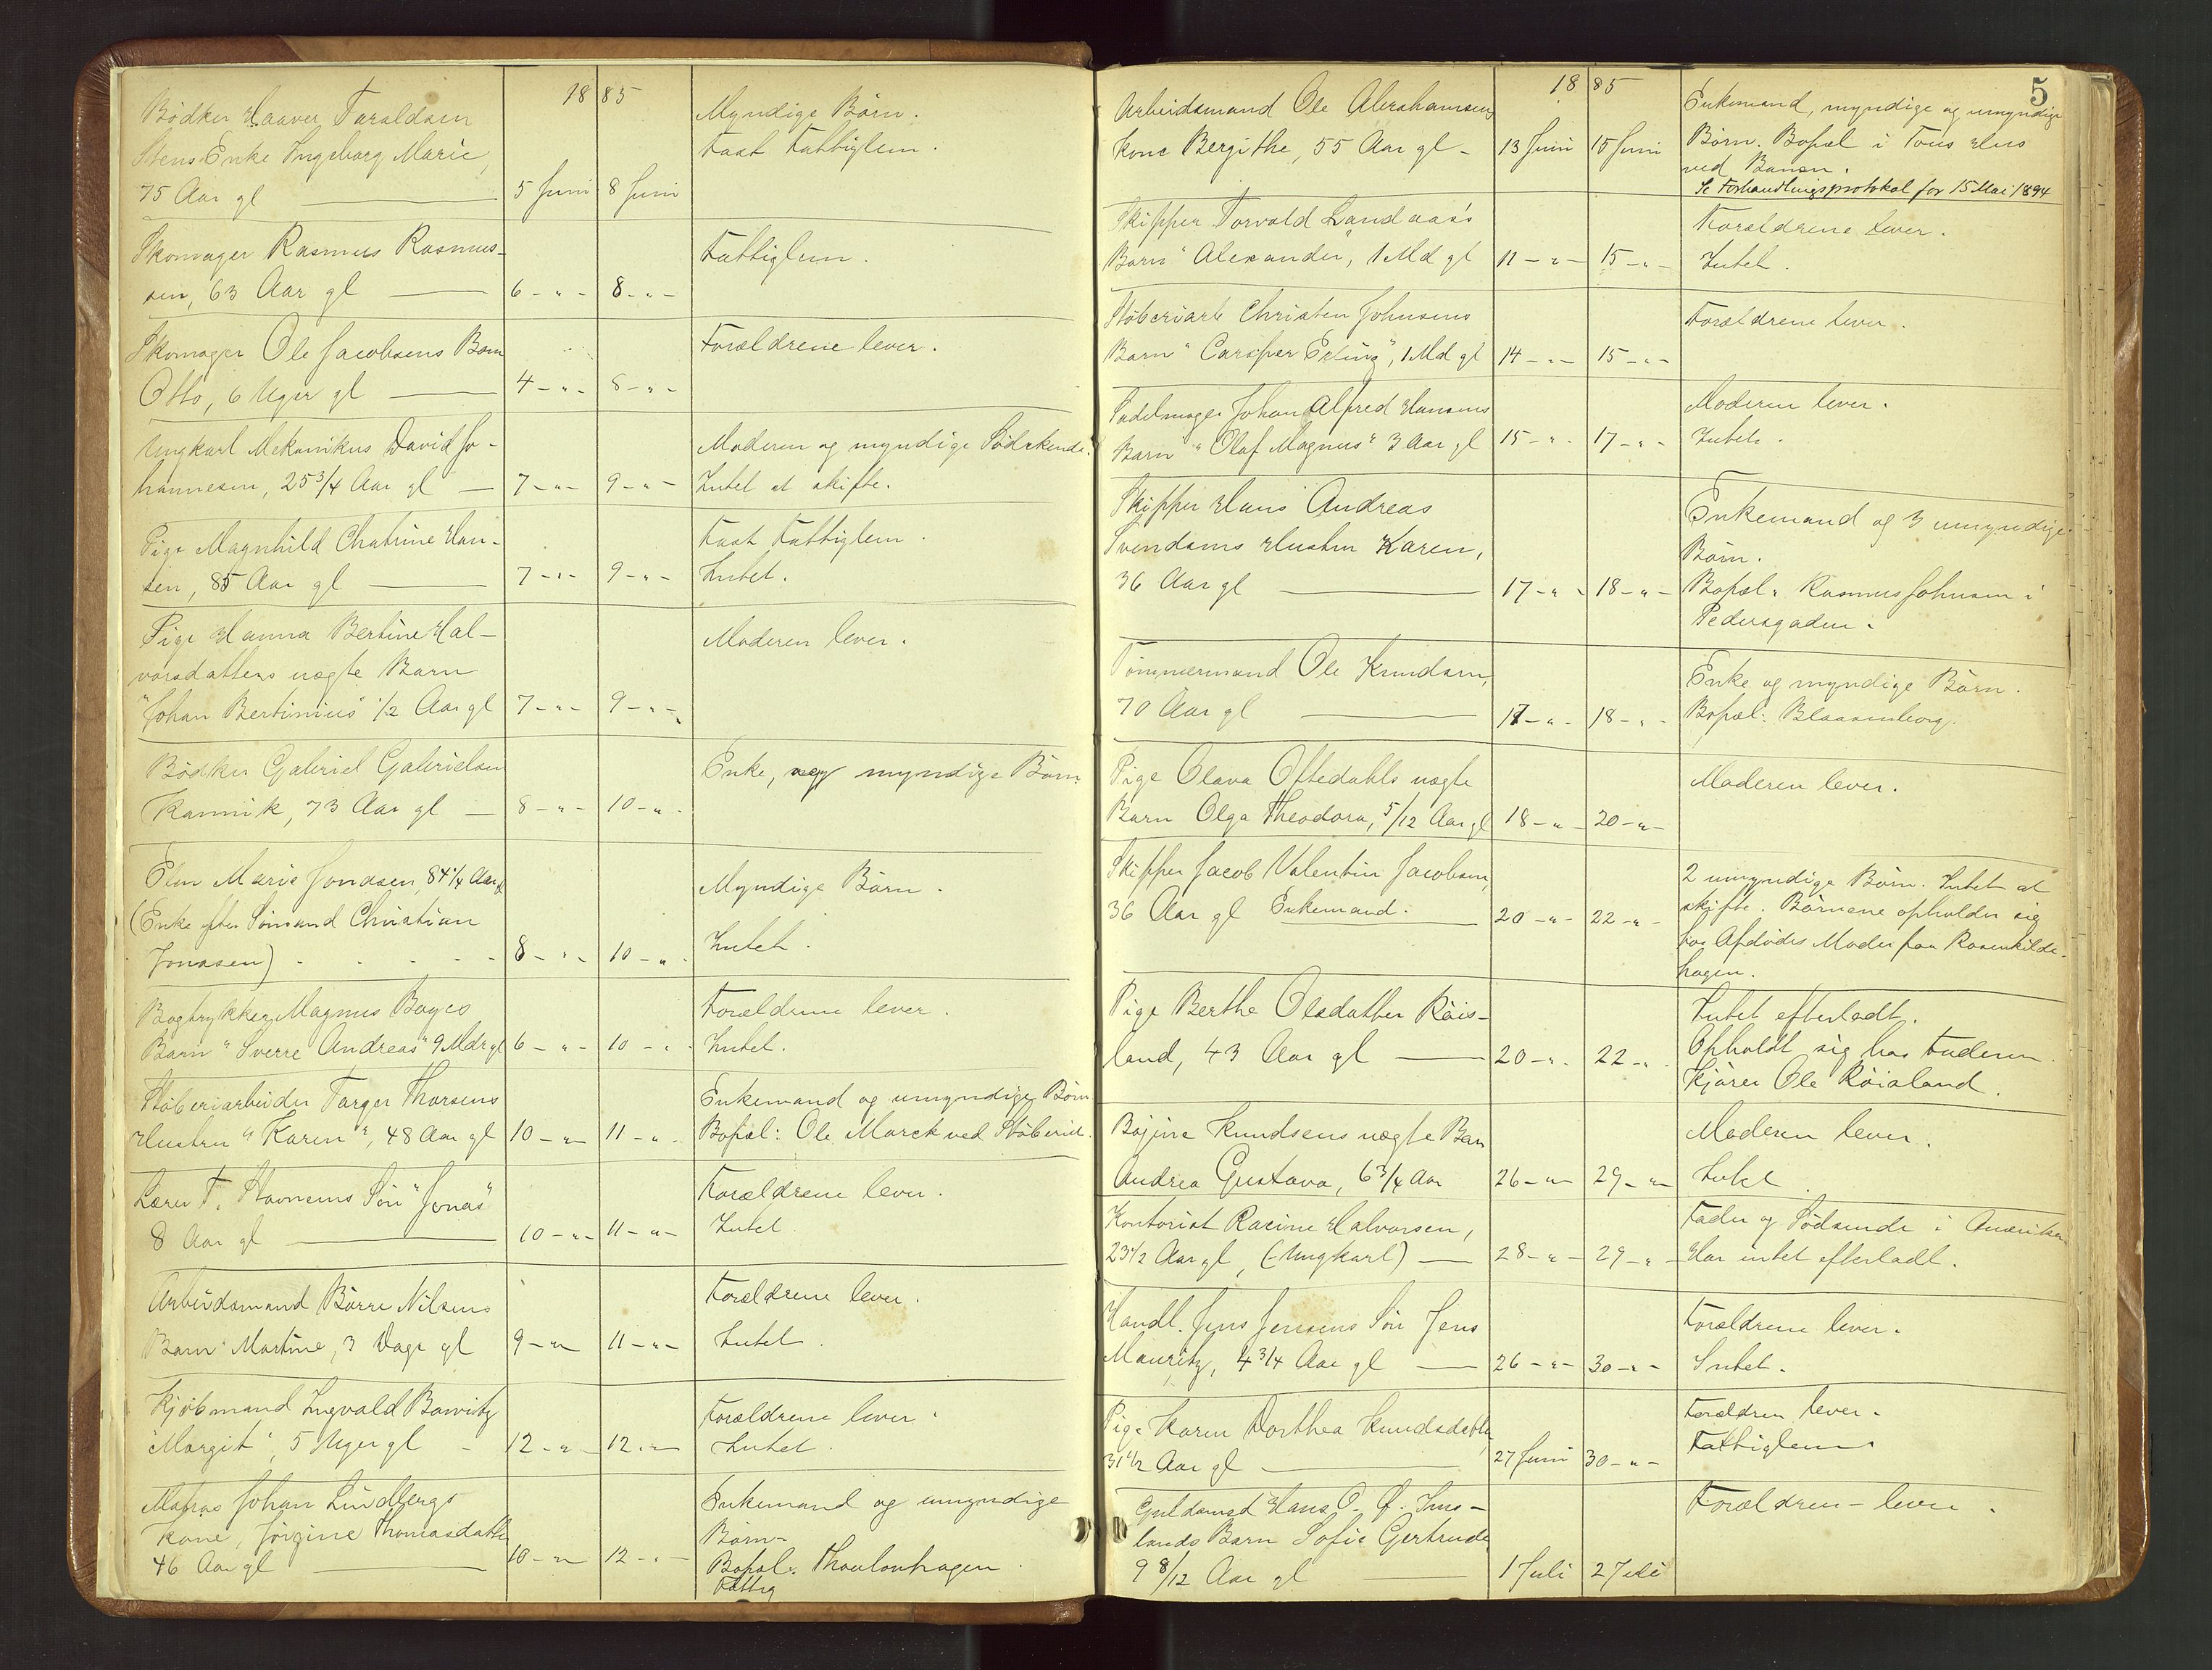 18 85
Bödker Haaver Taraldsen
Stens Enke Ingeborg Marie,
75 Aar gl
5 Juni 8 Juni
Myndige Börn.
Fast Fattiglem.
Skomager Rasmus Rasmus-
sen, 63 Aar gl
6 - " - 8 - " -
Fattiglem.
Skomager Ole Jacobsens Barn
Otto, 6 Uger gl
4 - " - 8 - " -
Forældrene lever.
Ungkarl Mekanikus David Jo-
hannesen, 25 3/4 Aar gl
7 - " - 9 - " -
Moderen og myndige Södskende.
Intet at skifte.
Pige Magnhild Chatrine Han-
sen, 85 Aar gl
7 - " - 9 - " -
Fast Fattiglem.
Intet.
Pige Hanna Bertine Hal-
vorsdatters uægte Barn
"Johan Bertinius" 1/2 Aar gl
7 - " - 9 - " -
Moderen lever.
Bödker Gabriel Gabrielsen
Kannik, 73 Aar gl
8 - " - 10 - " -
Enke, myndige Börn
Elen Marie Jonasen, 84 1/4 Aar gl
(Enke efter Sömand Christian
Jonasen)
8 - " - 10 - " -
Myndige Börn.
Intet.
Bogtrykker Magnus Boges
Barn "Sverre Andreas" 9 Mdr gl
6 - " - 10 - " -
Forældrene lever.
Intet.
Stöberiarbeider Torger Thorsens
Hustru "Karen", 48 Aar gl
10 - " - 11 - " -
Enkemand og umyndige Börn
Bopæl: Ole Marck ved Stöberiet.
Lærer T. Stavnems Sön "Jonas"
8 Aar gl
10 - " - 11 - " -
Forældrene lever.
Intet
Arbeidsmand Börre Nilsens
Barn Martine, 3 Dage gl
9 - " - 11 - " -
Forældrene lever.
Intet
Kjöbmand Ingvald
"Margit", 5 Uger gl
12 - " - 12 - " -
Forældrene lever.
Intet.
Matros Johan Lindbergs
Kone, Jörgine Thomasdatter
46 Aar gl
10 - " - 12 - " -
Enkemand og umyndige
Börn
Bopæl:
Fattig
5
18 85
Arbeidsmand Ole Abrahamsens
Kone Bergithe, 55 Aar gl -
13 Juni 15 Juni
Enkemand, myndige og umyndige
Börn. Bopæl i Tous Hus
ved Banen.
Se Forhandlingsprotokol for 15 Mai 1894
Skipper Torvald Landaas's
Barn "Alexander", 1 Md gl
11 - " - 15 - " -
Forældrene lever.
Intet.
Stöberiarb Christen Johnsens
Barn "Casper Erling", 1 Md gl
14 - " - 15 - " -
Forældrene lever.
Sadelmager Johan Alfred Hansens
Barn "Olaf Magnus" 3 Aar gl
15 - " - 17 - " -
Moderen lever.
Intet.
Skipper Hans Andreas
Svendsens Hustru Karen,
36 Aar gl
17 - " - 18 - " -
Enkemand og 3 umyndige
Börn.
Bopæl: Rasmus Johnsen i
Pedersgaden.
Tömmermand Ole Knudsen,
70 Aar gl
17 - " - 18 - " -
Enke og myndige Börn.
Bopæl: Blaasenborg.
Pige Olava Oftedahls uægte
Barn Olga Theodora, 5/12 Aar gl
18 - " - 20 - " -
Moderen lever.
Skipper Jacob Valentin Jacobsen,
36 Aar gl Enkemand.
20 - " - 22 - " -
2 umyndige Börn. Intet at
skifte. Börnene opholder sig
hos Afdödes Moder paa Rosenkilde-
hagen.
Pige Berthe Olsdatter Röis-
land, 43 Aar gl
20 - " - 22 - " -
Intet efterladt.
Opholdt sig hos Faderen
Kjörer Ole Röisland
Knudsens uægte Barn
Andrea Gustava, 6 3/4 Aar
26 - " - 29 - " -
Moderen lever.
Intet
Kontorist Racine Halvorsen,
23 1/2 Aar gl, (Ungkarl)
28 - " - 29 - " -
Fader og Södsende i Amerika
Har intet efterladt.
Handl. Jens Jensens Sön Jens
Mauritz, 4 3/4 Aar gl
26 - " - 30 - " -
Forældrene lever.
Intet.
Pige Karen Dorthea Knudsdatter
31 1/2 Aar gl
27 Juni 30 - " -
Forældren lever.
Fattiglem
Guldsmed Hans O. Ims-
lands Barn Sofie Gertrude
9 8/12 Aar gl
1 Juli 2 Juli
Forældren lever.